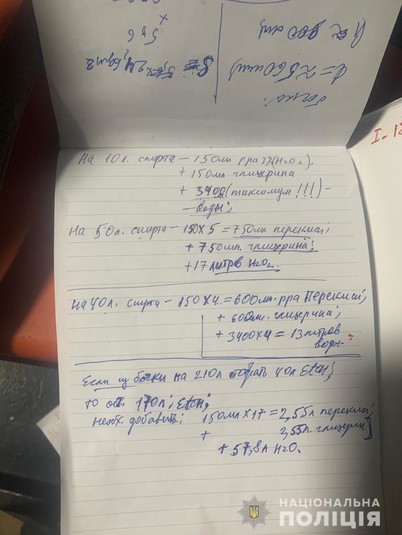 бочка:
ℓ = ≈560мм)
546
На 10л. спирта – 150мл р-ра 3%(H₂O₂),
+ 150мл глицерина
+ 3400 (максимум!!!) –
– воды;
На 50л. спирта – 150х5 = 750мл перекиси;
+ 750мл. глицерина;
+ 17 литров H₂O.
На 40л. спирта – 150х4 = 600мл. р-ра перекиси;
+ 600мл. глицерина;
+ 3400х4 = 13 литров
воды
Если из бочки на 210л 40л EtOH,
то ост. 170л; EtOH;
Необх. добавить: 150мл х 17 = 2,55л перекиси;
+ 2,55л. глицерин
+ 57,8л H₂O.
НАЦІОНАЛЬНА
ПОЛІЦІЯ